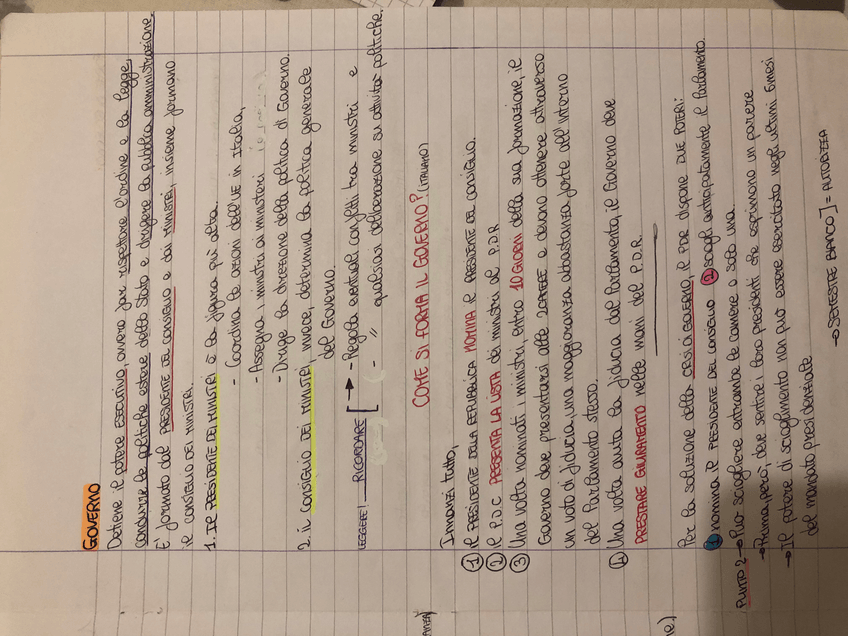 GOVERNO
Detiene il potere esecutivo, ovvero far rispettare l'ordine e la legge,
condurre le politiche estere dello Stato e dirigere la pubblica amministrazione.
E' formato dal PRESIDENTE DEL CONSIGLIO e dai MINISTRI, insieme formano
il CONSIGLIO DEI MINISTRI.
1. Il PRESIDENTE DEI MINISTRI è la figura più alta.
- Coordina le azioni dell'UE in Italia,
- Assegna i ministri ai ministeri
- Dirige la direzione della politica di Governo.
2. il CONSIGLIO DEI MINISTRI, invece, determina la politica generale
del Governo.
LEGGERE! RICORDARE [→ - Regola eventuali conflitti tra ministri e
- " qualsiasi deliberazione su attivita' politiche.
COME SI FORMA IL GOVERNO? (ITALIANO)
Innanzi tutto,
① Il PRESIDENTE DELLA REPUBBLICA NOMINA il PRESIDENTE DEL CONSIGLIO.
② Il P.D.C PRESENTA LA LISTA dei ministri al P.D.R
③ Una volta nominati i ministri, entro 10 GIORNI della sua formazione, il
Governo deve presentarsi alle 2 CAMERE e devono ottenere attraverso
un voto di fiducia, una maggioranza abbastanza forte all'interno
del Parlamento stesso.
④ Una volta avuta la fiducia dal Parlamento, il Governo deve
PRESTARE GIURAMENTO nelle mani del P.D.R.
Per la soluzione della CRISI DI GOVERNO, il PDR dispone DUE POTERI:
① nomina il PRESIDENTE DEL CONSIGLIO ② scogli anticipatamente il Parlamento.
PUNTO 2 → Può sciogliere entrambe le camere o solo una.
→ Prima, però, deve sentire i loro presidenti che esprimono un parere
→ Il potere di scioglimento non può essere esercitato negli ultimi 6 mesi
del mandato presidenziale
→ SEMESTRE BIANCO] = AUTORIZZA